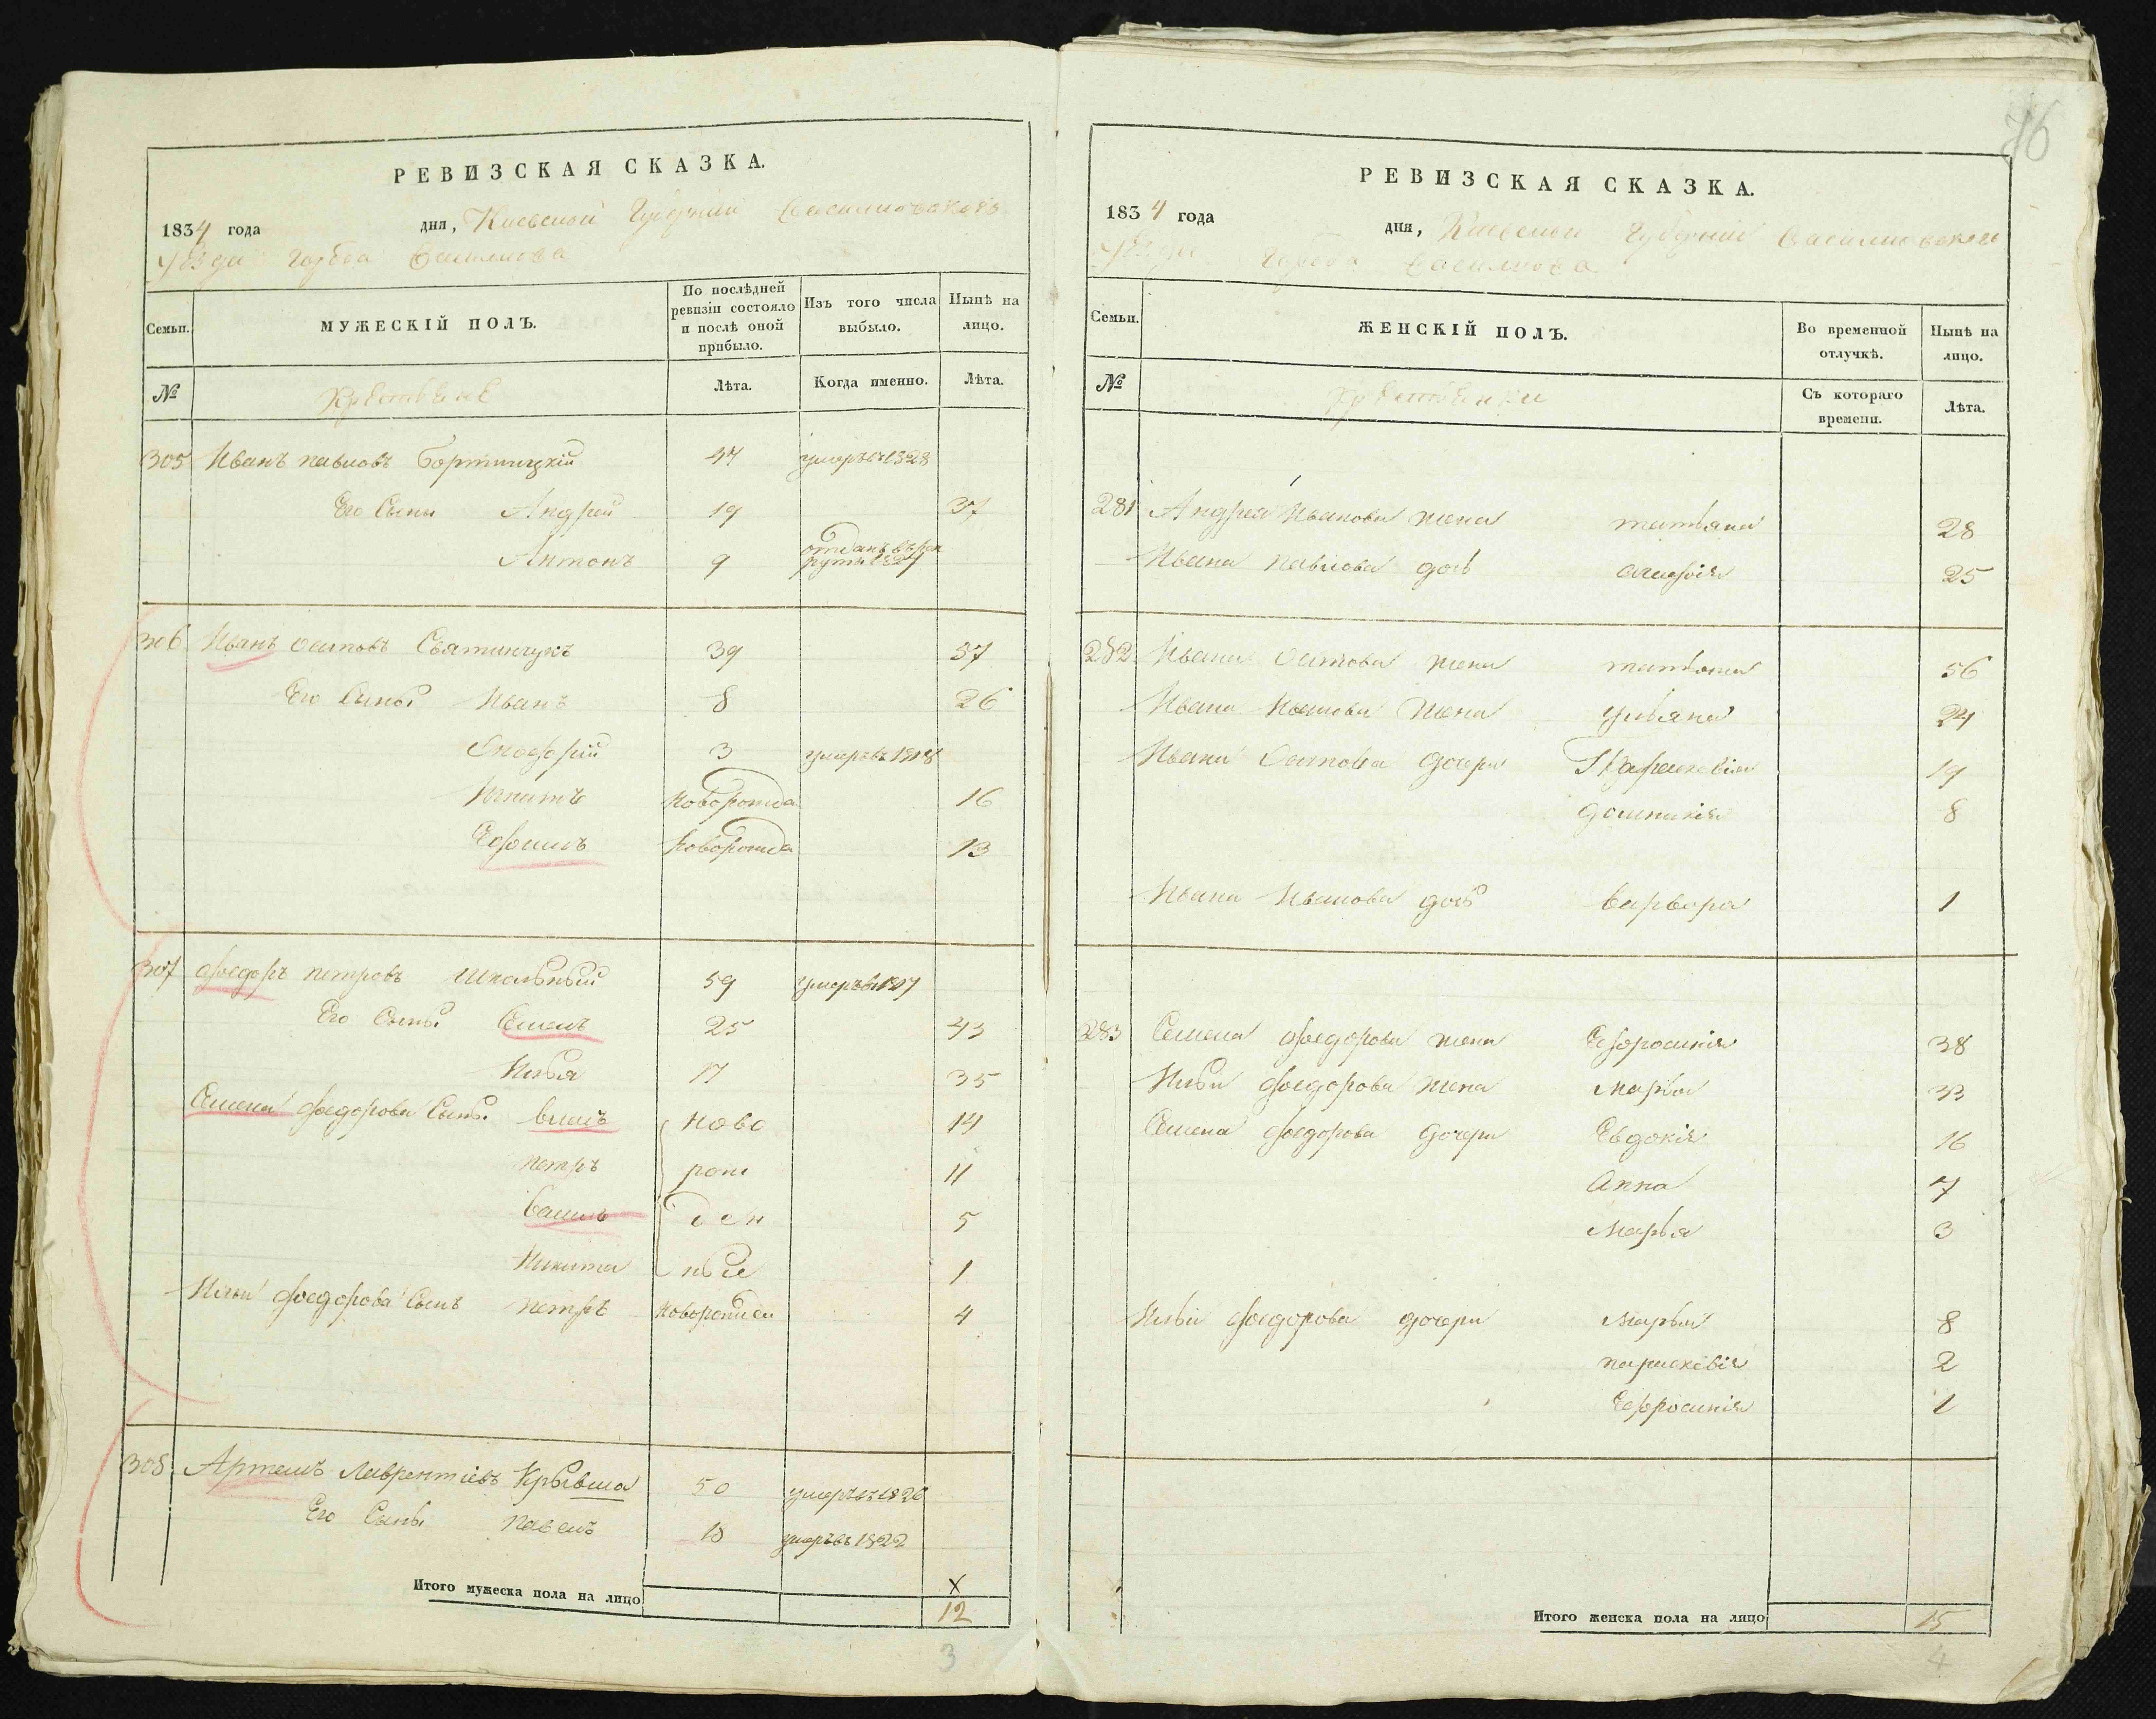 76
РЕВИЗСКАЯ СКАЗКА.
1834 года дня, Киевской Губернии Васильковскаго
уѣзда города Василькова
Семьи. МУЖЕСКІЙ ПОЛЪ. По послѣдней ревизіи состояло и послѣ оной прибыло. Изъ того числа выбыло. Нынѣ на лицо.
№ Лѣта. Когда именно. Лѣта.
305 Иванъ павловъ 47 умеръ въ 1828
Его Сыны Андрей 19 37
Антонъ 9 отданъ въ рек
руты 1827
306 Иванъ осиповъ 39 57
Его Сыны Иванъ 8 26
3 умеръ въ 1818
Игнатъ Новорожда 16
Ефимъ Новорожда 13
307 Федоръ петровъ Школьный 59 умеръ въ 1817
Его Сыны Семенъ 25 43
Илья 17 35
Семена федорова Сыны власъ ново 14
петръ рож 11
ден 5
Никита ные 1
Ильи федорова Сынъ петръ новорожден 4
308 Артемъ Лаврентіевъ 50 умеръ въ 1826
Его Сыны павелъ 18 умеръ въ 1822
Итого мужеска пола на лицо X
12
3
РЕВИЗСКАЯ СКАЗКА.
1834 года дня, Киевской Губерніи Васильковскаго
уѣзда города Василькова
Семьи. ЖЕНСКІЙ ПОЛЪ. Во временной отлучкѣ. Нынѣ на лицо.
№ Съ котораго времени. Лѣта.
281 Андрея Иванова жена татьяна 28
Ивана павлова дочь 25
282 Ивана осипова жена татьяна 56
Ивана Иванова жена ульяна 24
Ивана осипова дочери Параскевія 19
домникія 8
Ивана Иванова дочь варвора 1
283 Семена федорова жена Ефросинія 38
Ильи федорова жена марья 33
Семена федорова дочери Евдокія 16
Анна 7
марья 3
Ильи федорова дочери марья 8
параскевія 2
Ефросинія 1
Итого женска пола на лицо 15
4